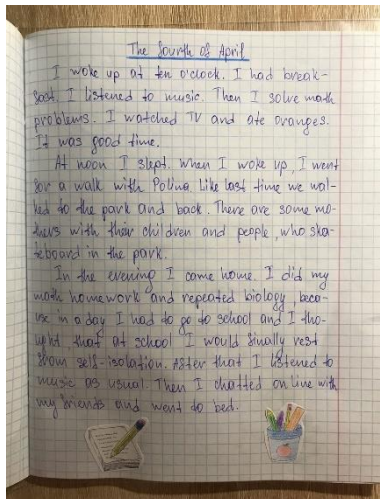 The fourth of April
I woke up at ten o'clock. I had break-
fast. I listened to music. Then I solve math
problems. I watched TV and ate oranges.
It was good time.
At noon I slept. When I woke up, I went
for a walk with Polina. Like last time we wal-
ked to the park and back. There are some mo-
thers with their children and people, who ska-
teboard in the park.
In the evening I came home. I did my
math homework and repeated biology, beca-
use in a day I had to go to school and I tho-
ught that at school I would finally rest
from self-isolation. After that I listened to
music as usual. Then I chatted online with
my friends and went to bed.